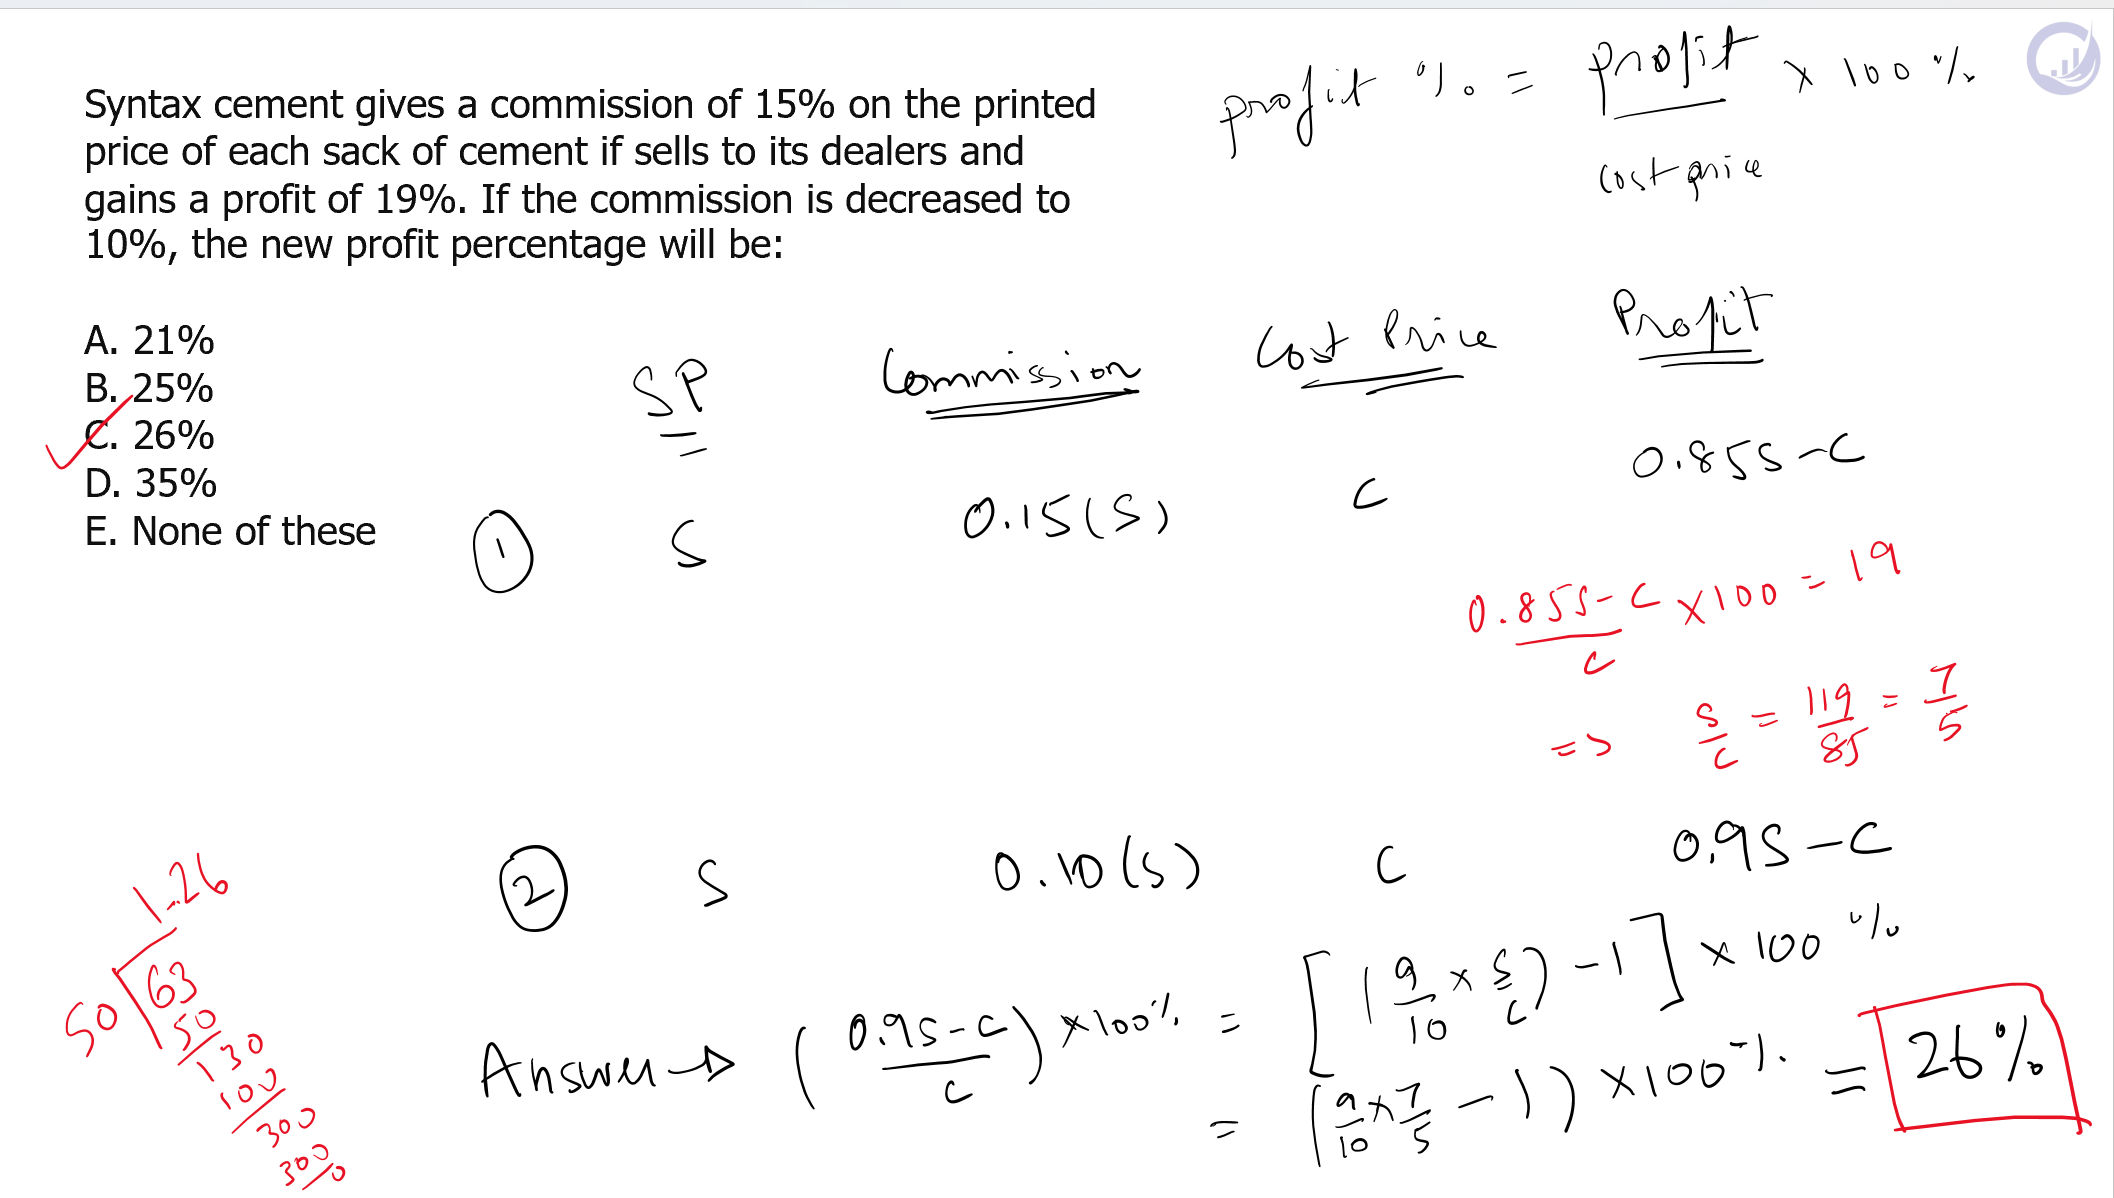 Syntax cement gives a commission of 15% on the printed
price of each sack of cement if sells to its dealers and
gains a profit of 19%. If the commission is decreased to
10%, the new profit percentage will be:
A. 21%
B. 25%
C. 26%
D. 35%
E. None of these
profit % = profit / cost price × 100 %
SP Commission Cost Price Profit
① S 0.15(S) C 0.85S-C
0.85S-C / C × 100 = 19
=> S/C = 119/85 = 7/5
② S 0.10(S) C 0.9S-C
Answer → (0.9S-C / C) × 100% = [(9/10 × S/C) - 1] × 100 %
= (9/10 × 7/5 - 1) × 100 % = 26%
1.26
50 63
50
130
100
300
300
0